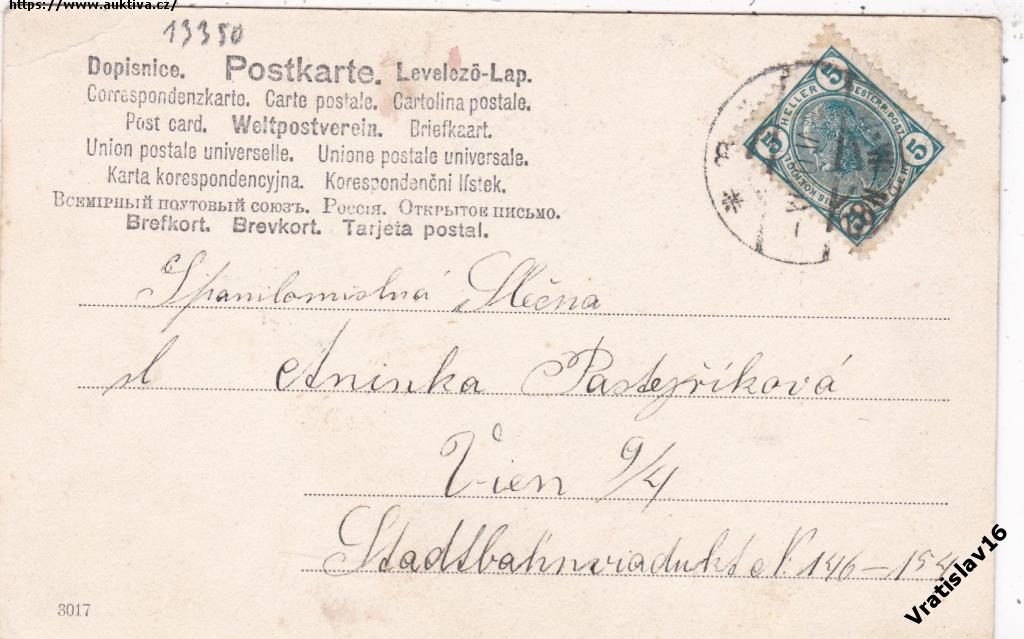 https://www.auktiva.cz/
13350
Dopisnice. Postkarte. Levelező-Lap.
Correspondenzkarte. Carte postale. Cartolina postale.
Post card. Weltpostverein. Briefkaart.
Union postale universelle. Unione postale universale.
Karta korespondencyjna. Korespondenční lístek.
Всемірный почтовый союзъ. Россія. Открытое письмо.
Brefkort. Brevkort. Tarjeta postal.
5 HELLER 5
5
Spanilomislná Slečna
sl Aninka Pastejříková
Vien 9/4
Stadtbahnviadukt N. 146-154
3017
Vratislav16